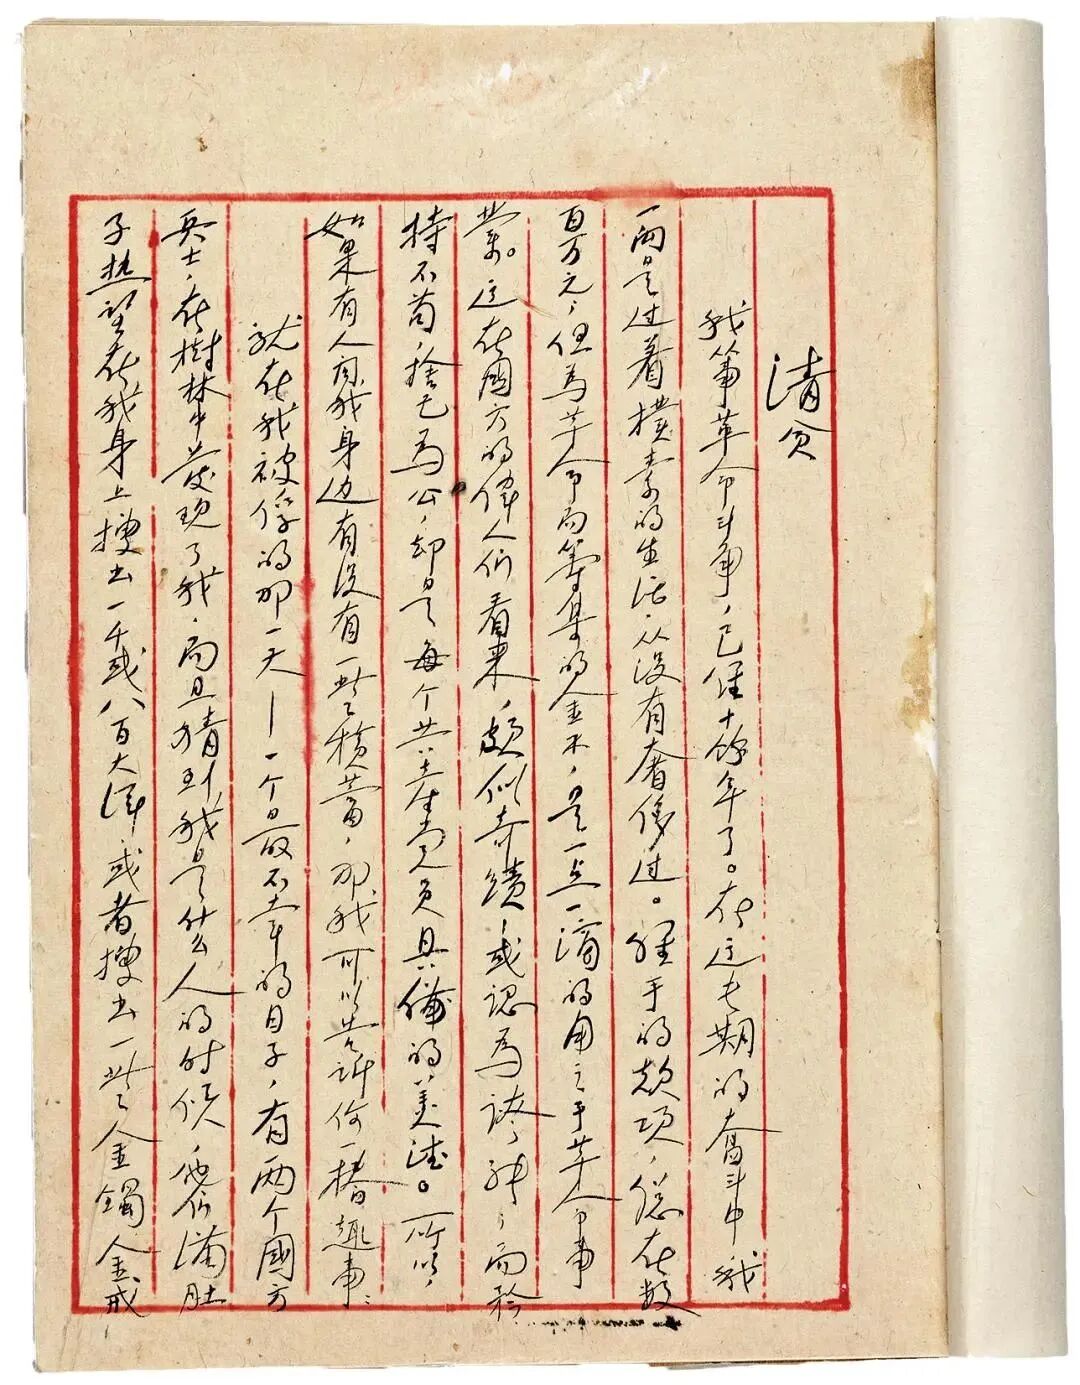 清贫
我從事革命斗争，已经十餘年了。在这长期的奮斗中，我
一向是过着樸素的生活，从没有奢侈过。经手的款项，總在数
百万元；但為革命而筹集的金錢，是一点一滴的用之于革命事
業。这在國方的偉人们看来，颇似奇蹟，或認為誇张；而矜
持不苟，捨己為公，却是每个共產党員具備的美德。所以，
如果有人问我身边有没有一些積蓄，那我可以告訴你一樁趣事：
就在我被俘的那一天——一个最不幸的日子，有两个國方
兵士，在樹林中發现了我，而且猜到我是什么人的时候，他们满肚
子热望在我身上搜出一千或八百大洋，或者搜出一些金鐲金戒